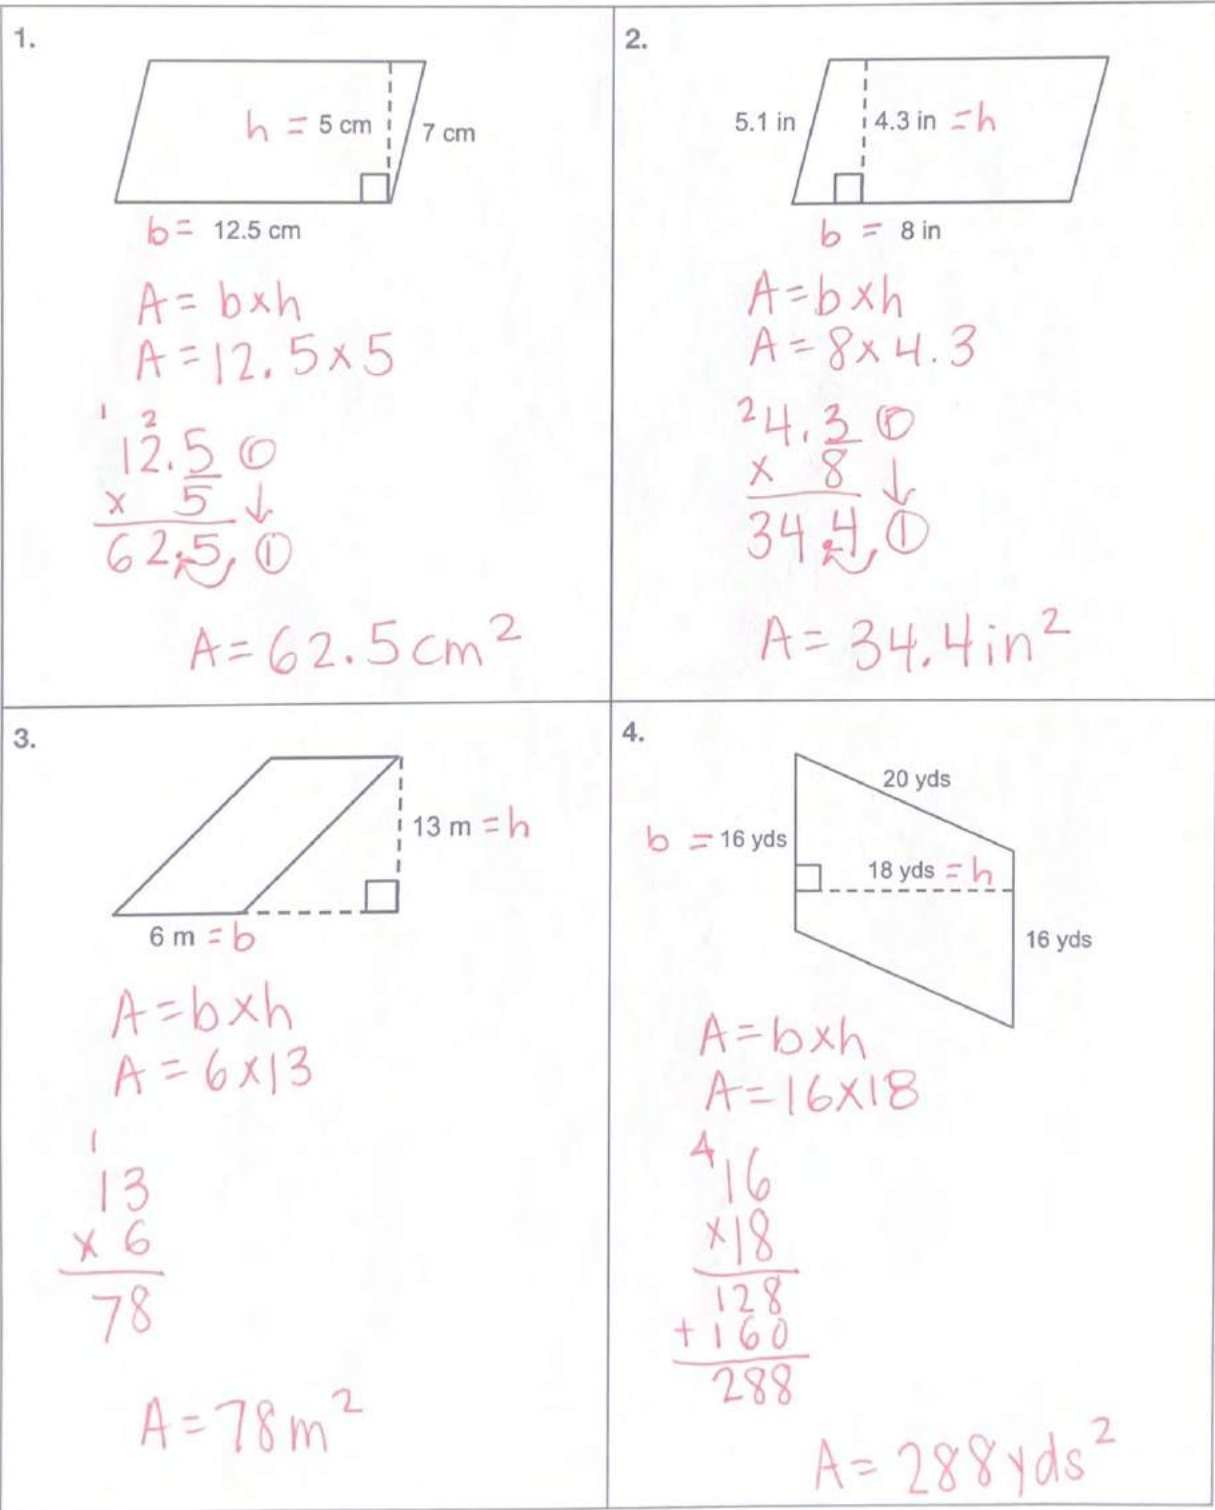 1.
h = 5 cm
7 cm
b = 12.5 cm
A = b x h
A = 12.5 x 5
1 2
12.5 0
x 5 ↓
62.5. 1
A = 62.5 cm²
2.
5.1 in
4.3 in = h
b = 8 in
A = b x h
A = 8 x 4.3
2
4.3 1
x 8 ↓
34.4. 1
A = 34.4 in²
3.
13 m = h
6 m = b
A = b x h
A = 6 x 13
1
13
x 6
78
A = 78 m²
4.
20 yds
b = 16 yds
18 yds = h
16 yds
A = b x h
A = 16 x 18
4
16
x 18
128
+ 160
288
A = 288 yds²